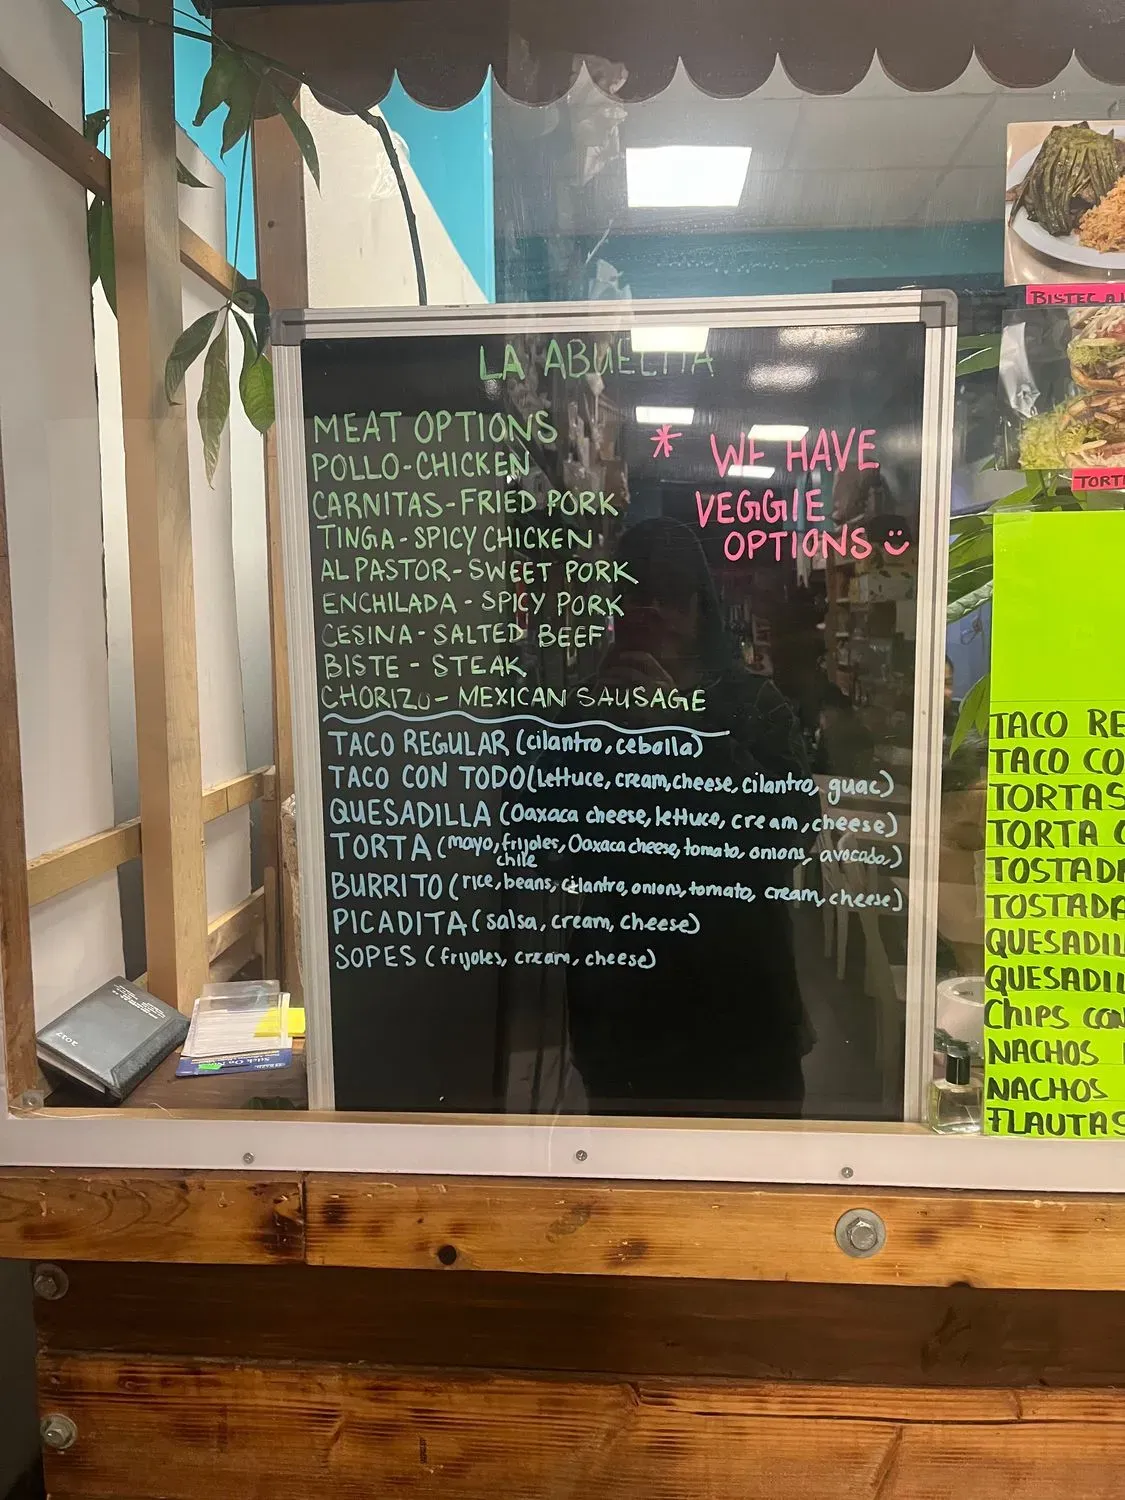 LA ABUELITA
MEAT OPTIONS
POLLO-CHICKEN
CARNITAS-FRIED PORK
TINGA-SPICY CHICKEN
AL PASTOR-SWEET PORK
ENCHILADA-SPICY PORK
CESINA-SALTED BEEF
BISTE-STEAK
CHORIZO-MEXICAN SAUSAGE
* WE HAVE
VEGGIE
OPTIONS
TACO REGULAR (cilantro, cebolla)
TACO CON TODO (Lettuce, cream, cheese, cilantro, guac)
QUESADILLA (Oaxaca cheese, lettuce, cream, cheese)
TORTA (mayo, frijoles, Oaxaca cheese, tomato, onions, avocado,)
chile
BURRITO (rice, beans, cilantro, onions, tomato, cream, cheese)
PICADITA (salsa, cream, cheese)
SOPES (frijoles, cream, cheese)
BISTEC A
TORT
TACO RE
TACO CO
TORTAS
TORTA
TOSTADA
TOSTADA
QUESADIL
QUESADIL
Chips con
NACHOS
NACHOS
FLAUTAS
2017